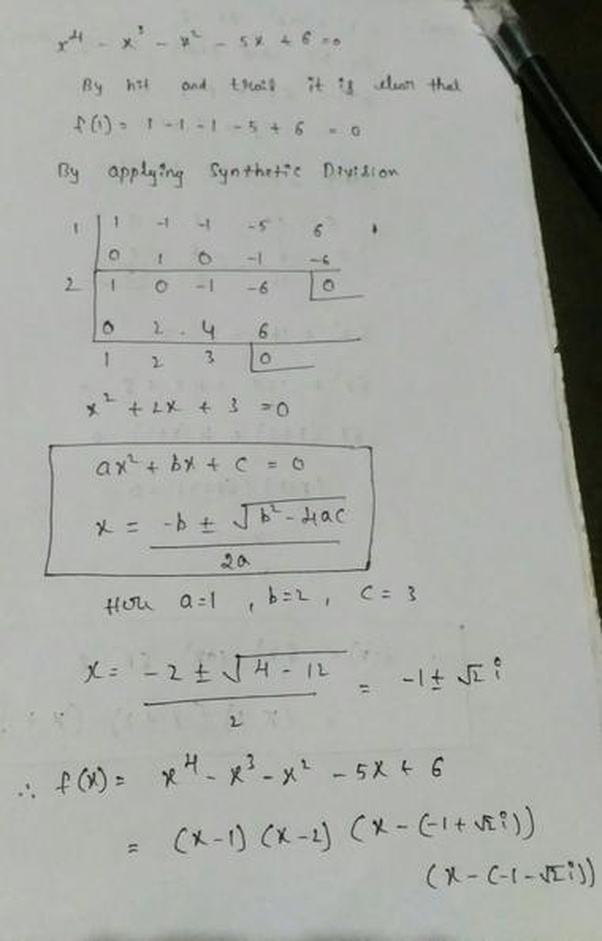 x⁴ - x³ - x² - 5x + 6 = 0
By hit and trail it is clear that
f(1) = 1 - 1 - 1 - 5 + 6 = 0
By applying Synthetic Division
1 | 1 -1 -1 -5 6
0 1 0 -1 -6
2 | 1 0 -1 -6 | 0
0 2 4 6
1 2 3 | 0
x² + 2x + 3 = 0
ax² + bx + c = 0
x = (-b ± √(b² - 4ac)) / 2a
Here a=1, b=2, c=3
x = (-2 ± √(4 - 12)) / 2 = -1 ± √2 i
∴ f(x) = x⁴ - x³ - x² - 5x + 6
= (x-1) (x-2) (x-(-1+√2i))
(x-(-1-√2i))